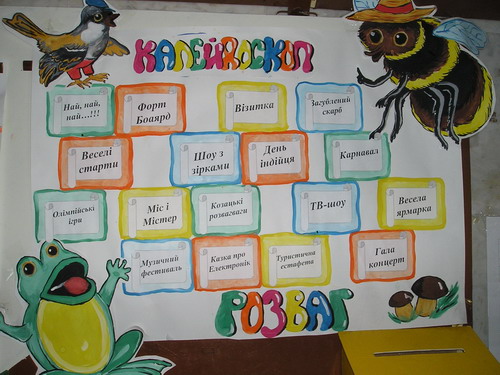 КАЛЕЙДОСКОП
Най, най,
най...!!!
Форт
Боаярд
Візитка
Загублений
скарб
Веселі
старти
Шоу з
зірками
День
індійця
Карнавал
Олімпійські
ігри
Міс і
Містер
Козацькі
розваваги
ТВ-шоу
Весела
ярмарка
Музичний
фестиваль
Казка про
Електронік
Туристична
естафета
Гала
концерт
РОЗВАГ